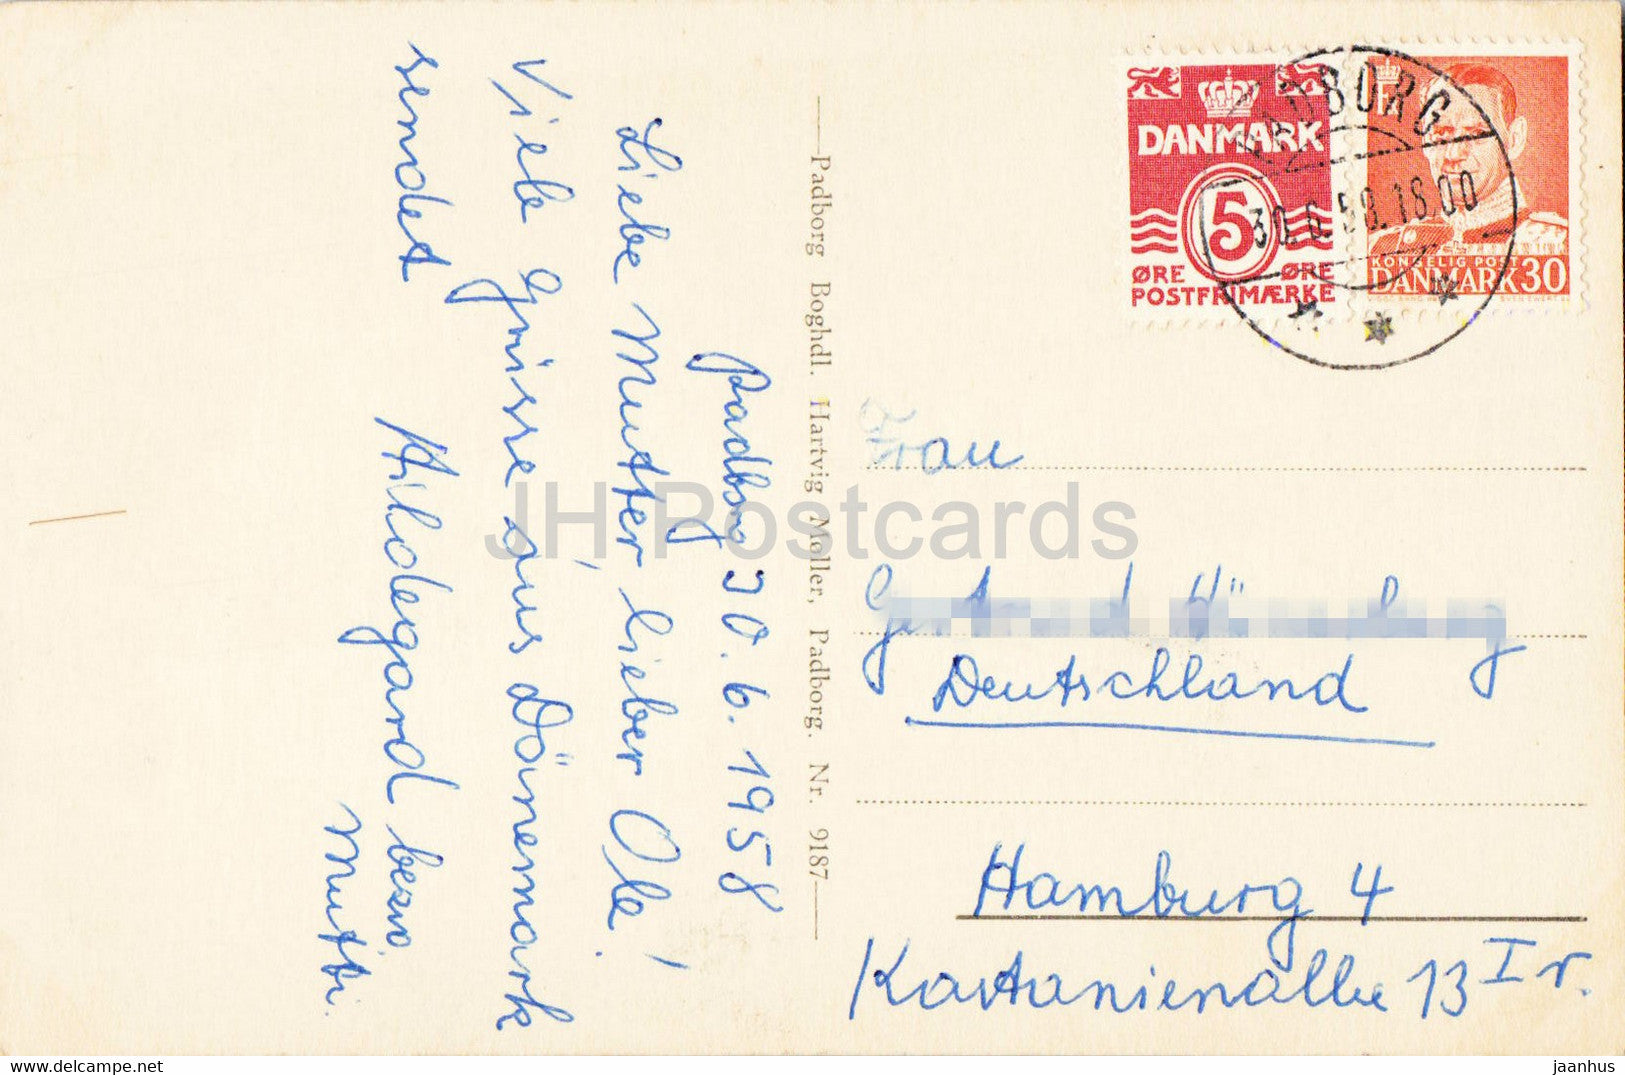 Padborg 30.6.1958
Liebe Mutter, lieber Ole!
Viele Grüsse aus Dänemark
sendet
Hildegard bezw.
Mutti.
Padborg Boghdl. Hartvig Møller, Padborg. Nr. 9187
DANMARK
5
ØRE ØRE
POSTFRIMÆRKE
KONGELIG POST
DANMARK 30
PADBORG
30.6.58.18.00
Frau
Deutschland
Hamburg 4
Kastanienallee 13 I r.
JH Postcards
jaanhus